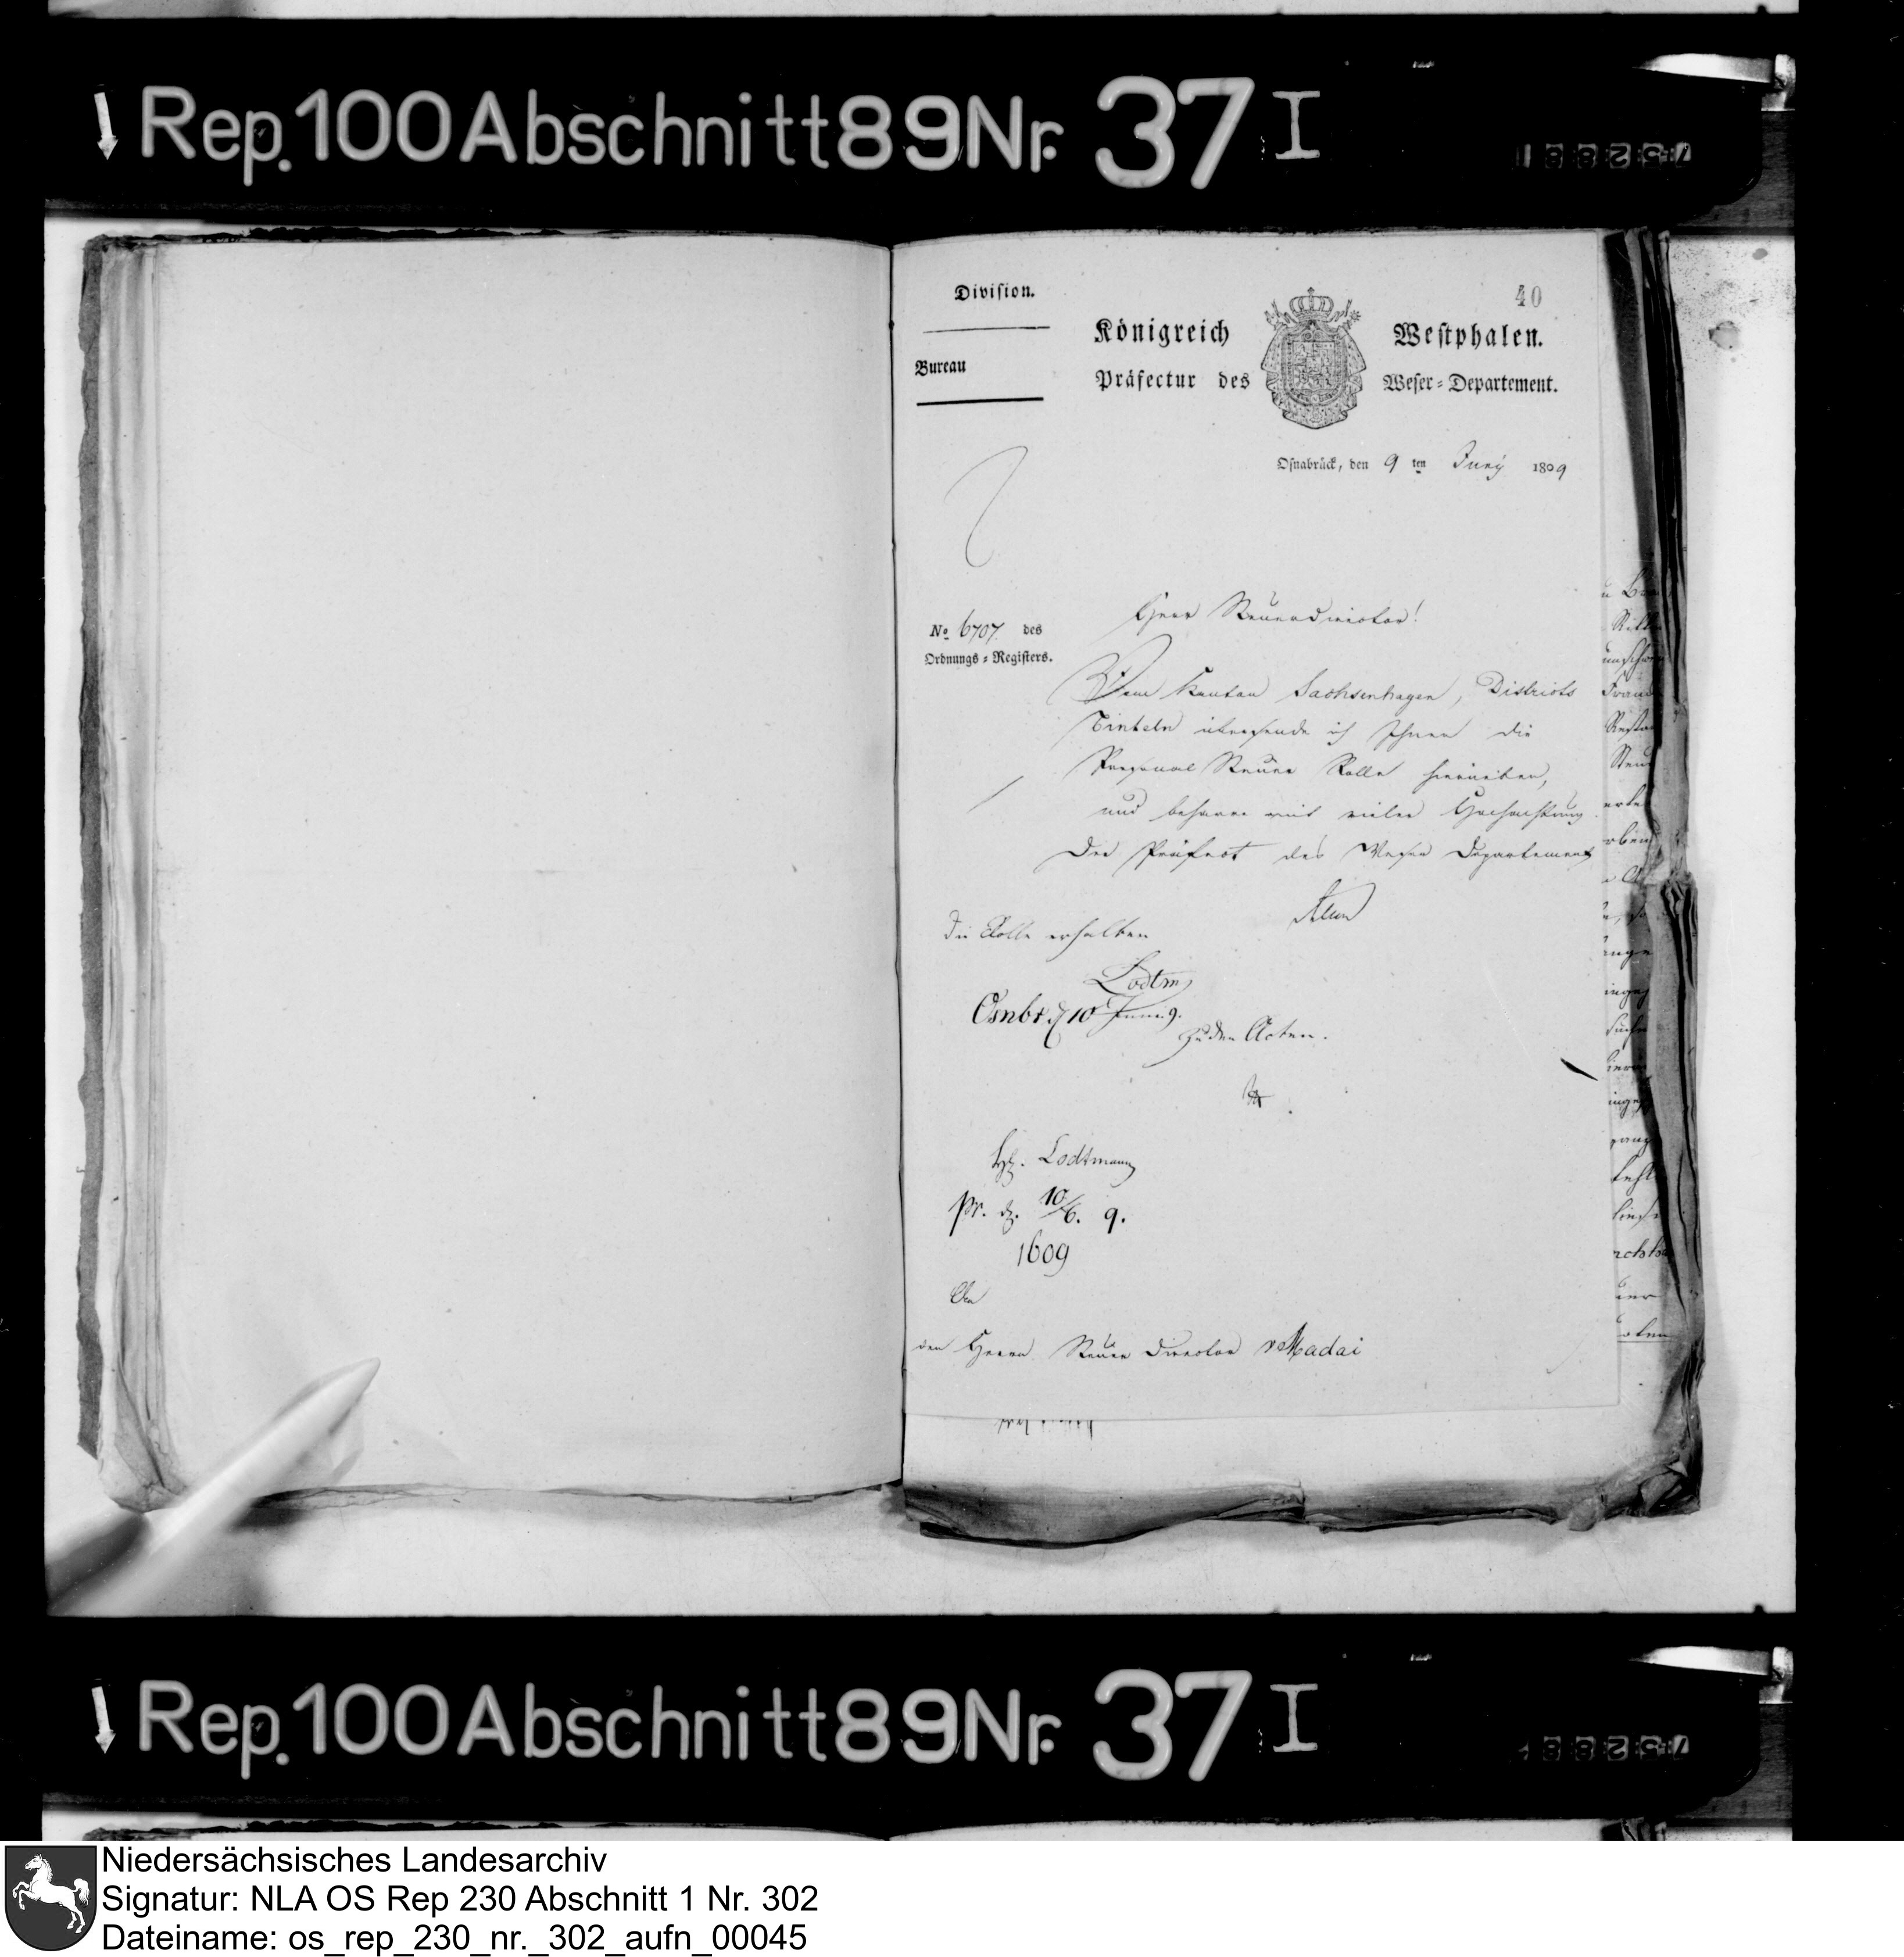 Rep. 100 Abschnitt 89 Nr. 37 I
Division.
40
Königreich Westphalen.
Bureau
Präfectur des Weser-Departement.
Osnabrück, den 9 ten Juny 1809
Herr Steuerdirector!
No 6707. des
Ordnungs-Registers.
Vom Kanton Sachsenhagen, Districts
Rinteln übersende ich Ihnen die
Personal Steuer Rolle hierneben,
und beharre mit vieler Hochachtung
Der Präfect des Weser Departements
die Rolle erhalten
Lodtm
Osnbr. d 10 Juni 9.
zu den Acten.
Lodtmann
Pr. d. 10/6. 9.
1609
An
den Herrn Steuer Director v Madai
Rep. 100 Abschnitt 89 Nr. 37 I
Niedersächsisches Landesarchiv
Signatur: NLA OS Rep 230 Abschnitt 1 Nr. 302
Dateiname: os_rep_230_nr._302_aufn_00045